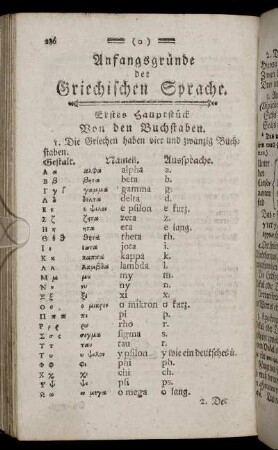 236 (o)
Anfangsgründe
der
Griechischen Sprache.
Erstes Hauptstück
Von den Buchstaben.
1. Die Griechen haben vier und zwanzig Buch-
staben.
Gestalt. Namen. Aussprache.
Α α αλφα alpha a.
Β β βητα beta b.
Γ γ γαμμα gamma g.
Δ δ δελτα delta d.
Ε ε ε ψιλον e psilon e kurz.
Ζ ζ ζητα zeta z.
Η η ητα eta e lang.
Θ ϑ θ θητα theta th.
Ι ι ιωτα jota i.
Κ κ καππα kappa k.
Λ λ λαμβδα lambda l.
Μ μ μυ my m.
Ν ν νυ ny n.
Ξ ξ ξι xi x.
Ο ο ο μικρον o mikron o kurz.
Π π πι pi p.
Ρ ρ ρω rho r.
Σ σ ς σιγμα sigma s.
Τ τ ταυ tau t.
Υ υ υ ψιλον ypsilon y wie ein deutsches ü.
Φ φ φι phi ph.
Χ χ χι chi ch.
Ψ ψ ψι psi ps.
Ω ω ω μεγα o mega o lang.
2. Der